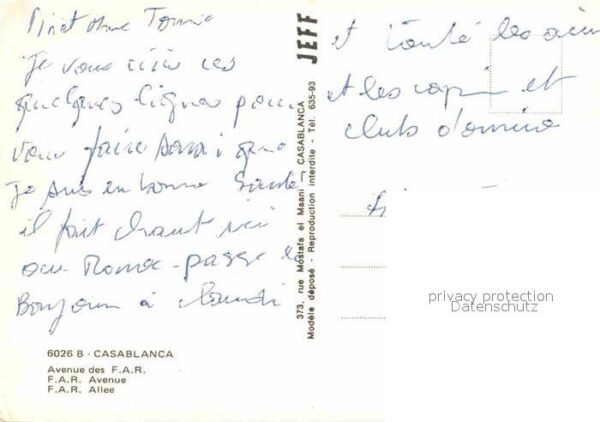 Je vous écris ces
quelques lignes pour
vous faire savoir que
Je suis en bonne Santé,
il fait chaut ici
au Maroc - passe le
Bonjour à
et toute les
et les copin et
clubs
JEFF
373, rue Mostafa el Maani - CASABLANCA
Modèle déposé - Reproduction interdite - Tél. 635-93
6026 B - CASABLANCA
Avenue des F.A.R.
F.A.R. Avenue
F.A.R. Allee
privacy protection
Datenschutz